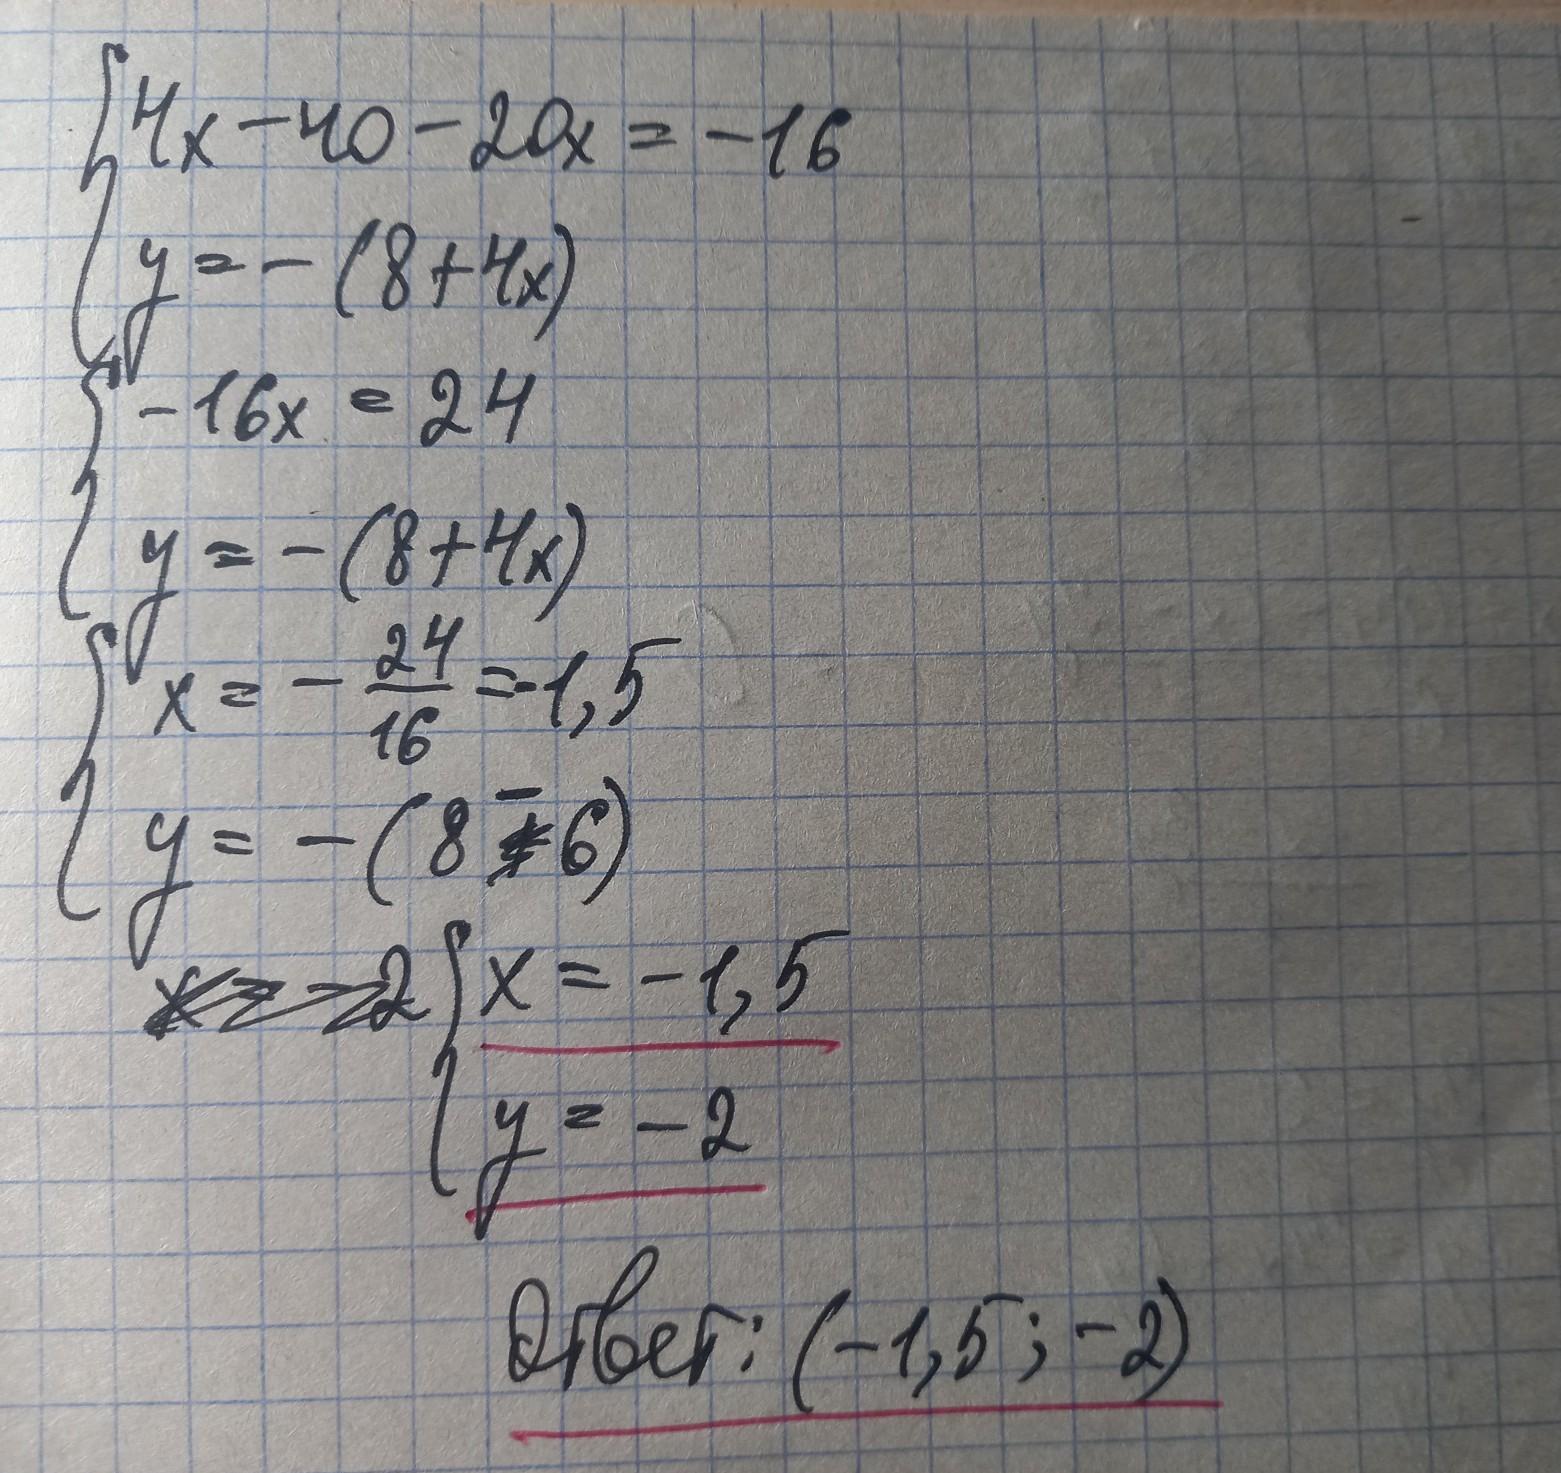 4x - 40 - 20x = -16
y = - (8 + 4x)
-16x = 24
y = - (8 + 4x)
x = - 24/16 = -1,5
y = - (8 - 6)
x = -1,5
y = -2
Ответ: (-1,5; -2)